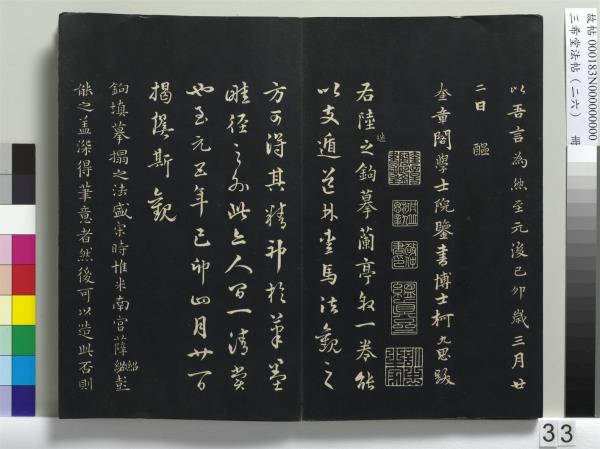 以吾言為然至元後己卯歲三月廿
二日
奎章閣學士院鑒書博士柯九思跋
右陸繼之鉤摹蘭亭敘一卷能
以支遁道林愛馬法觀之
方可得其精神於筆墨
畦徑之外此亦人間一清賞
也至元五年己卯四月廿一日
揭傒斯觀
鉤填摹搨之法盛宋時惟米南宮薛紹彭
能之蓋深得筆意者然後可以造此否則
故帖 000183N000000000
三希堂法帖（二六） 冊
33